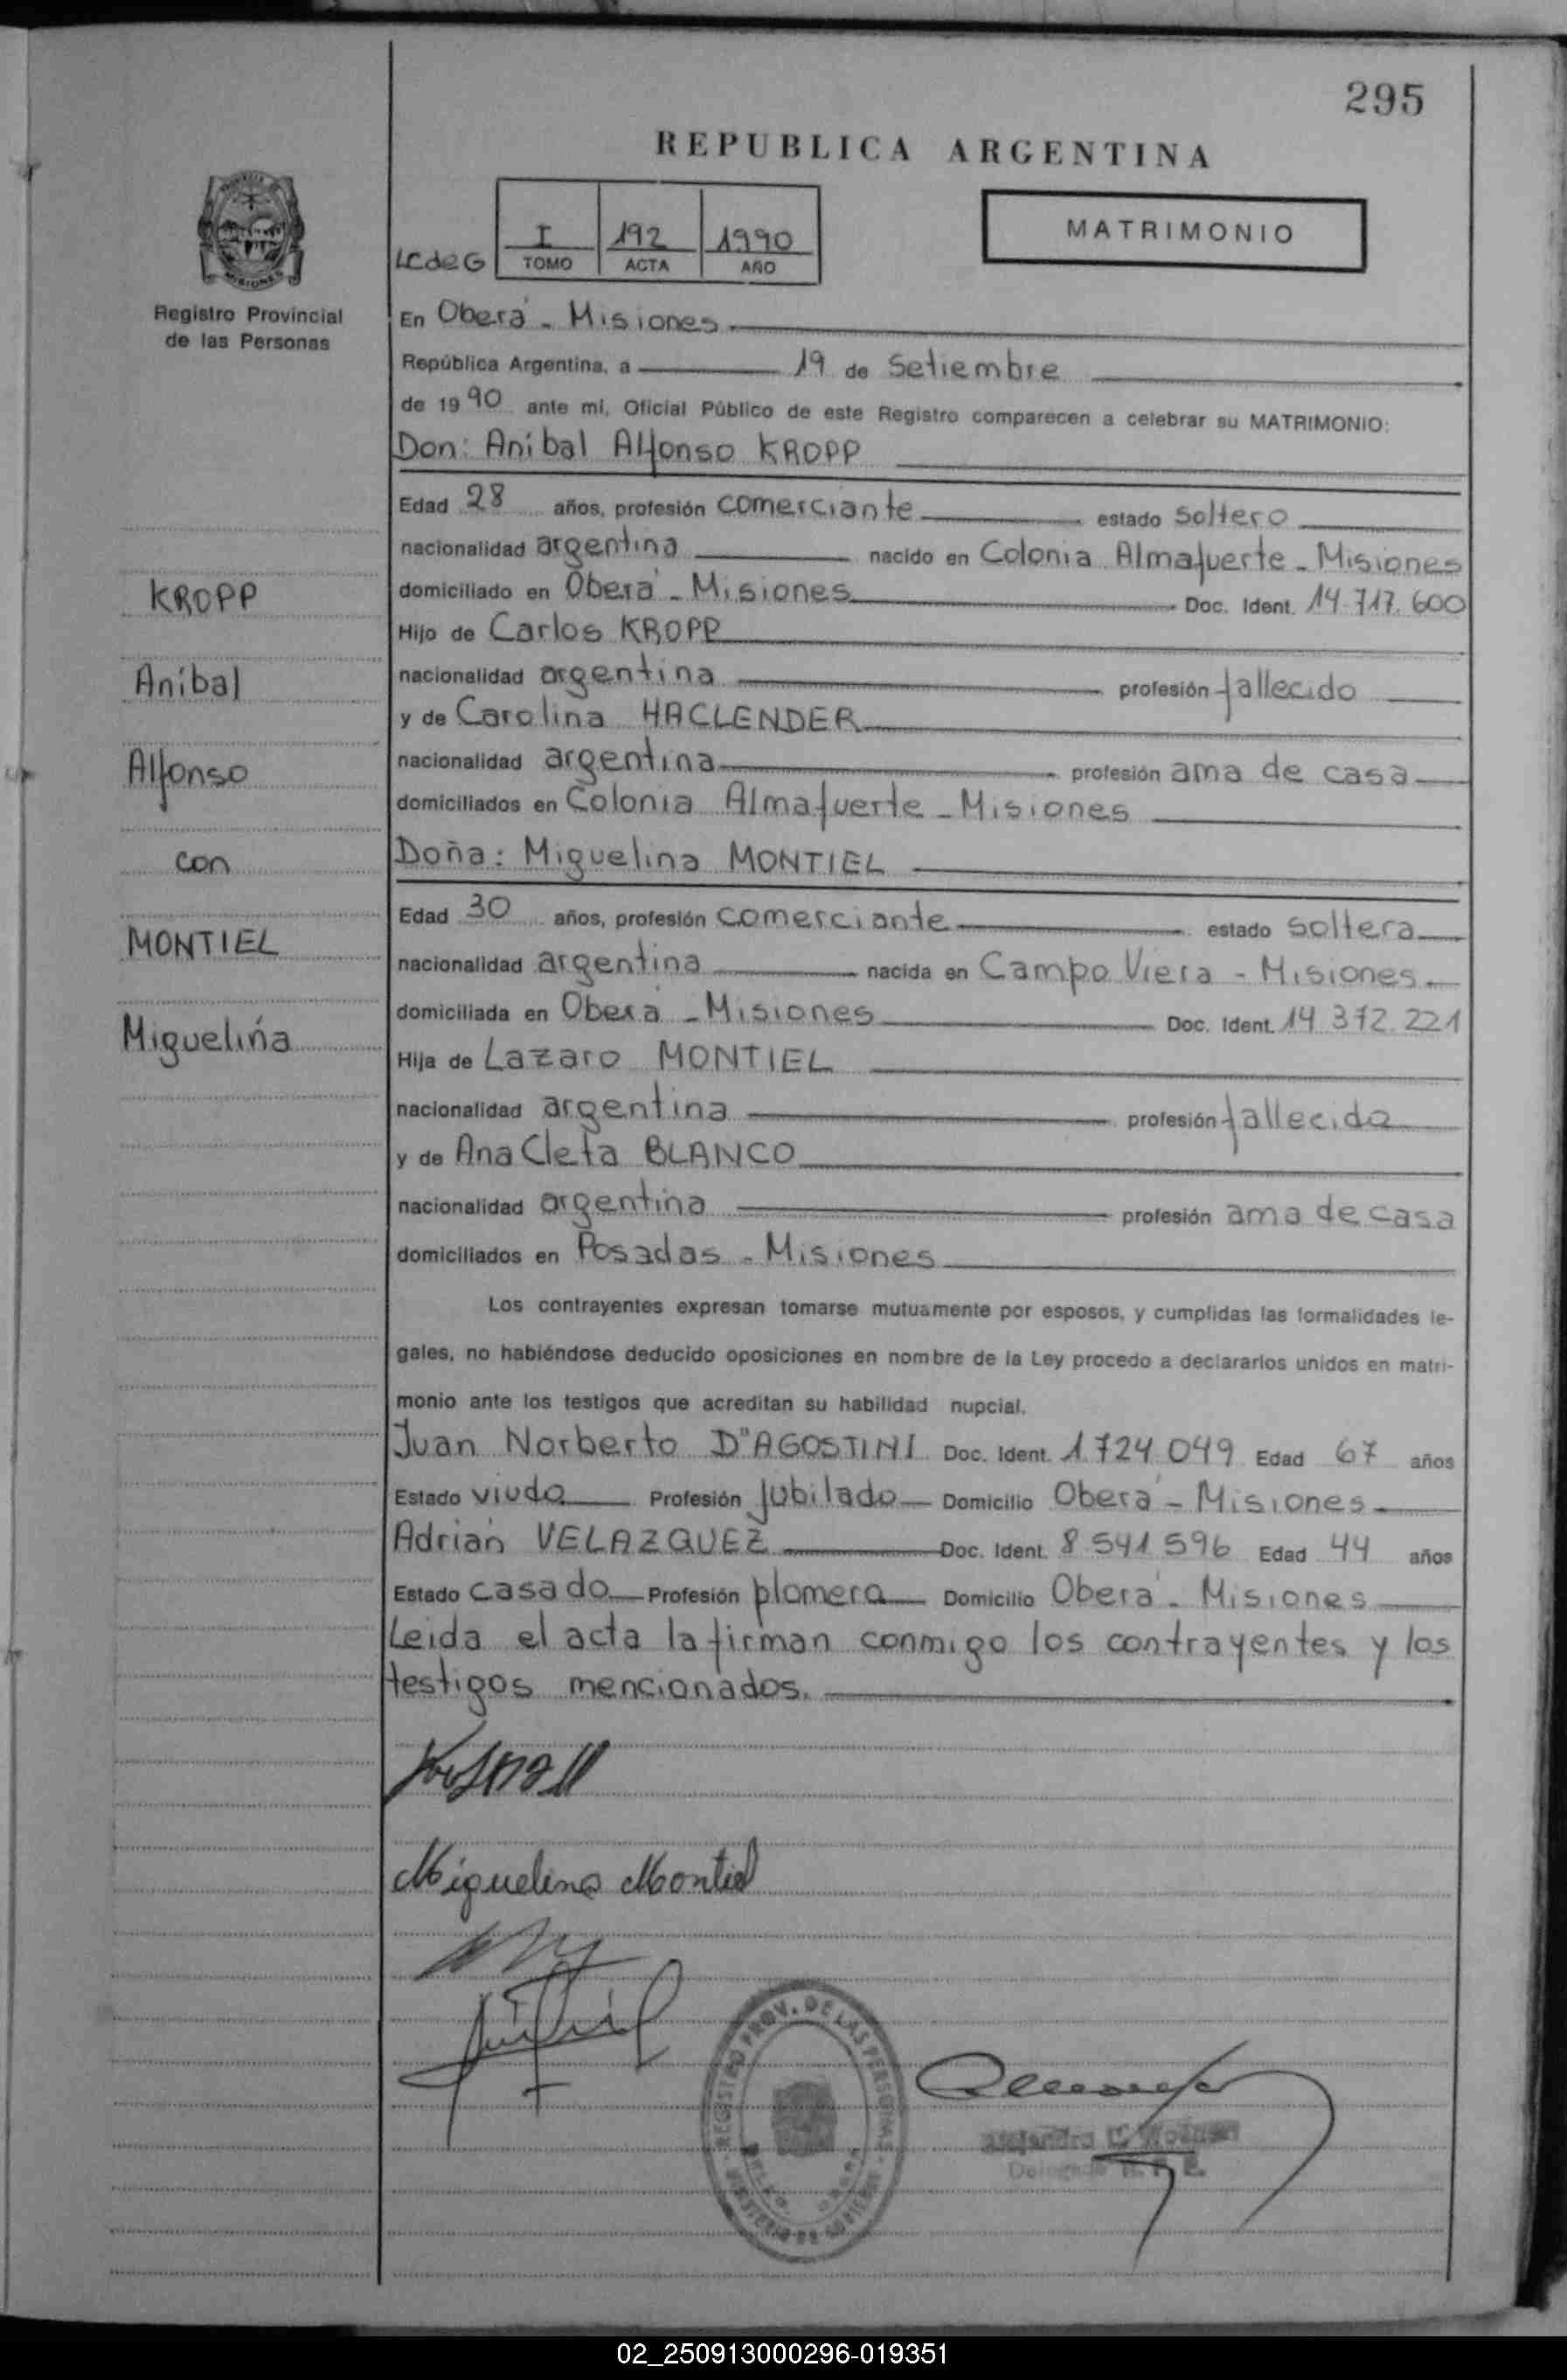 295
REPUBLICA ARGENTINA
MISIONES
Registro Provincial
de las Personas
LCdeG
I 192 1990
TOMO ACTA AÑO
MATRIMONIO
En Oberá - Misiones
República Argentina, a 19 de Setiembre
de 1990 ante mí, Oficial Público de este Registro comparecen a celebrar su MATRIMONIO:
Don: Aníbal Alfonso KROPP
Edad 28 años, profesión comerciante estado soltero
nacionalidad argentina nacido en Colonia Almafuerte - Misiones
domiciliado en Oberá - Misiones Doc. Ident. 14.717.600
Hijo de Carlos KROPP
nacionalidad argentina profesión fallecido
y de Carolina HACLENDER
nacionalidad argentina profesión ama de casa
domiciliados en Colonia Almafuerte - Misiones
Doña: Miguelina MONTIEL
Edad 30 años, profesión comerciante estado soltera
nacionalidad argentina nacida en Campo Viera - Misiones
domiciliada en Oberá - Misiones Doc. Ident. 14.372.221
Hija de Lazaro MONTIEL
nacionalidad argentina profesión fallecido
y de Ana Cleta BLANCO
nacionalidad argentina profesión ama de casa
domiciliados en Posadas - Misiones
Los contrayentes expresan tomarse mutuamente por esposos, y cumplidas las formalidades le-
gales, no habiéndose deducido oposiciones en nombre de la Ley procedo a declararlos unidos en matri-
monio ante los testigos que acreditan su habilidad nupcial.
Juan Norberto D"AGOSTINI Doc. Ident. 1.724.049 Edad 67 años
Estado viudo Profesión Jubilado Domicilio Oberá - Misiones
Adrián VELAZQUEZ Doc. Ident. 8.541.596 Edad 44 años
Estado casado Profesión plomero Domicilio Oberá - Misiones
Leida el acta la firman conmigo los contrayentes y los
testigos mencionados.
KROPP
Aníbal
Alfonso
con
MONTIEL
Miguelina
Miguelina Montiel
REGISTRO PROV. DE LAS PERSONAS
Alejandro
Delegado R. P. P.
02_250913000296-019351